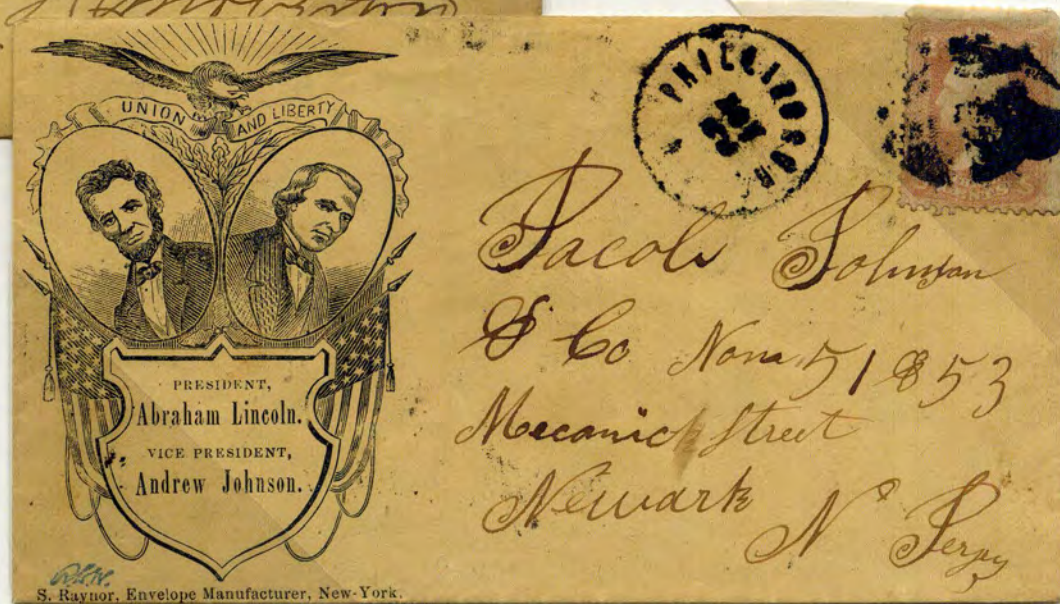 UNION AND LIBERTY
PRESIDENT,
Abraham Lincoln.
VICE PRESIDENT,
Andrew Johnson.
S. Raynor, Envelope Manufacturer, New-York.
Jacob Johnson
& Co Nom 51 & 53
Mecanick Street
Newark
N Jersy